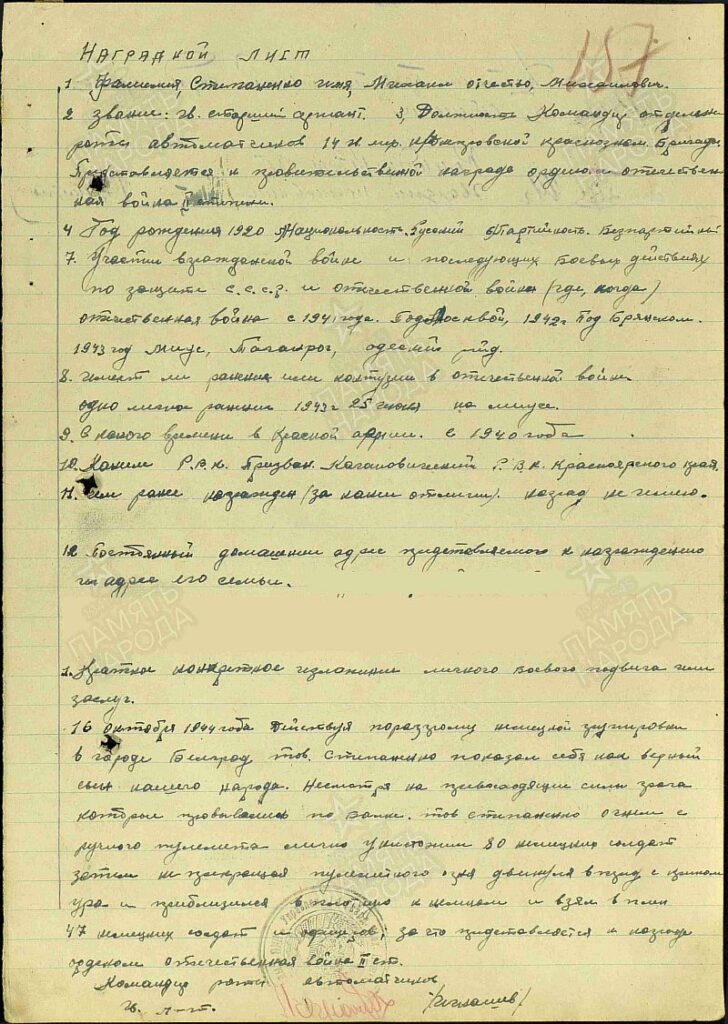 157
НАГРАДНОЙ ЛИСТ
1. Фамилия, Степаненко имя, Михаил отчество, Михайлович.
2 звание: гв. старший сержант. 3, Должность Командир отделен.
роты автоматчиков 14 Н мир. краснознам. Бригады
Представляется к правительственной награде ордену отечествен-
ная война II степени.
4 Год рождения 1920 5 Национальность. Русский 6 Партийность. Безпартийный
7. Участие в гражданской войне и последующих боевых действиях
по защите с.с.с.р. и отечественной войне (где, когда)
отечественная война с 1941 года. Под Москвой, 1942г Под Брянском.
1943 год Миус, Таганрог, одеский рейд.
8. имеет ли ранения или контузии в отечественной войне
одно легкое ранение 1943 г 25 июня на миусе.
9. С какого времени в Красной армии. с 1940 года
10. Каким Р.В.К. Призван. Кагановический Р.В.К. Красноярского края.
11. чем ранее награжден (за какие отличия). наград не имею.
12 Постоянный домашнии адрес представляемого к награждению
или адрес его семьи.
1. Краткое конкретное изложение личного боевого подвига или
заслуг.
16 октября 1944 года Действуя по разгрому немецкой группировки
в городе Белград тов. Степаненко показал себя как верный
сын нашего народа. Несмотря на превосходящие силы врага
которые прорывались по балке. тов степаненко огнем с
ручного пулемета лично уничтожил 80 немецких солдат
затем не прекращая пулеметного огня двинулся в перед с криком
ура и приблизился в плотную к немцам и взял в плен
47 немецких солдат и офицеров, за что представляется к награде
орденом отечественная война II ст.
Командир роты автоматчиков
гв. л-т. /Игнашев/
ПАМЯТЬ НАРОДА